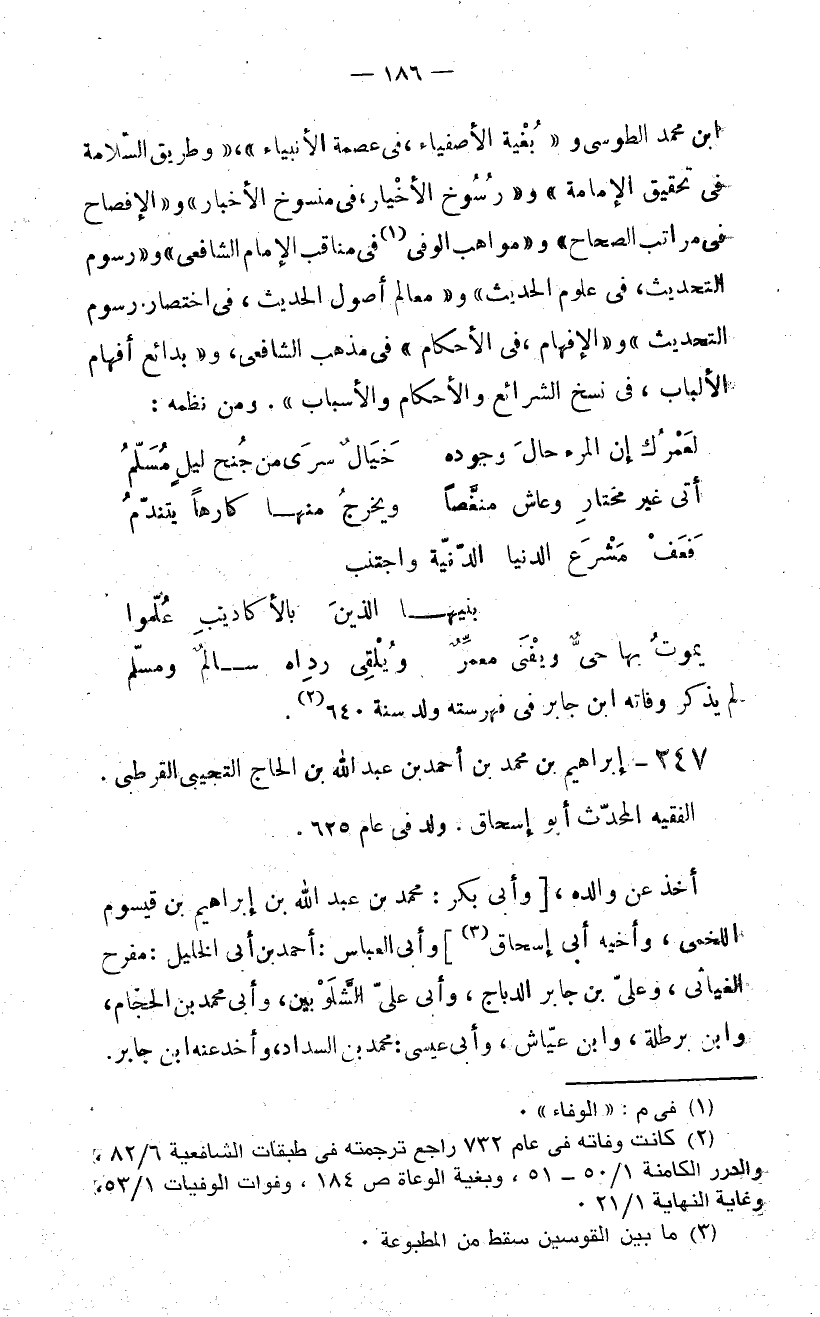 — ١٨٦ —
ابن محمد الطوسى و « بُغْية الأصفياء ،فى عصمة الأنبياء »،« وطريق السّلامة
فى تحقيق الإمامة » و« رُسُوخ الأخْيار،فى منسوخ الأخبار»و«الإفصاح
فى مراتب الصحاح» و«مواهب الوفى(١)فى مناقب الإمام الشافعى»و«رسوم
التحديث، فى علوم الحديث» و« معالم أصول الحديث ، فى اختصار رسوم
التحديث »و«الإفهام ،فى الأحكام » فى مذهب الشافعى، و« بدائع أفهام
الألباب ، فى نسخ الشرائع والأحكام والأسباب » . ومن نظمه :
لعَمْرُك إن المرء حالَ وجوده خَيَالٌ سرَى من جُنح ليلٍ مُسَلّمُ
أتى غير مختارِ وعاش منغَّصاً ويخرجُ منهـا كارهاً يتندّمُ
فَعَفْ مَشْرَع الدنيا الدّنيّة واجتنب
بنيهـا الذينَ بالأكاذيبِ عُلّموا
يموتُ بها حىٌّ ويفْنَى معمرٌّ ويُلْقِى رِداه سـالمٌ ومسلّم
لم يذكر وفاته ابن جابر فى فهرسته ولد سنة ٦٤٠(٢) .
٣٤٧ – إبراهيم بن محمد بن أحمد بن عبد الله بن الحاج التجيبى القرطبى .
الفقيه المحدّث أبو إسحاق . ولد فى عام ٦٢٥ .
أخذ عن والده ، [ وأبى بكر : محمد بن عبد الله بن إبراهيم بن قيسوم
اللخمى ، وأخيه أبى إسحاق(٣) ] وأبى العباس :أحمد بن أبى الخليل :مفرح
الغيائى ، وعلىّ بن جابر الدباج ، وأبى علىّ الشَّلَوْبين، وأبى محمد بن الحجّام،
وابن برطلة ، وابن عيّاش ، وأبى عيسى:محمد بن السداد،وأخد عنه ابن جابر.
(١) فى م : « الوفاء » .
(٢) كانت وفاته فى عام ٧٣٢ راجع ترجمته فى طبقات الشافعية ٨٢/٦ ،
والدرر الكامنة ٥٠/١ – ٥١ ، وبغية الوعاة ص ١٨٤ ، وفوات الوفيات ٥٣/١،
وغاية النهاية ٢١/١ .
(٣) ما بين القوسين سقط من المطبوعة .